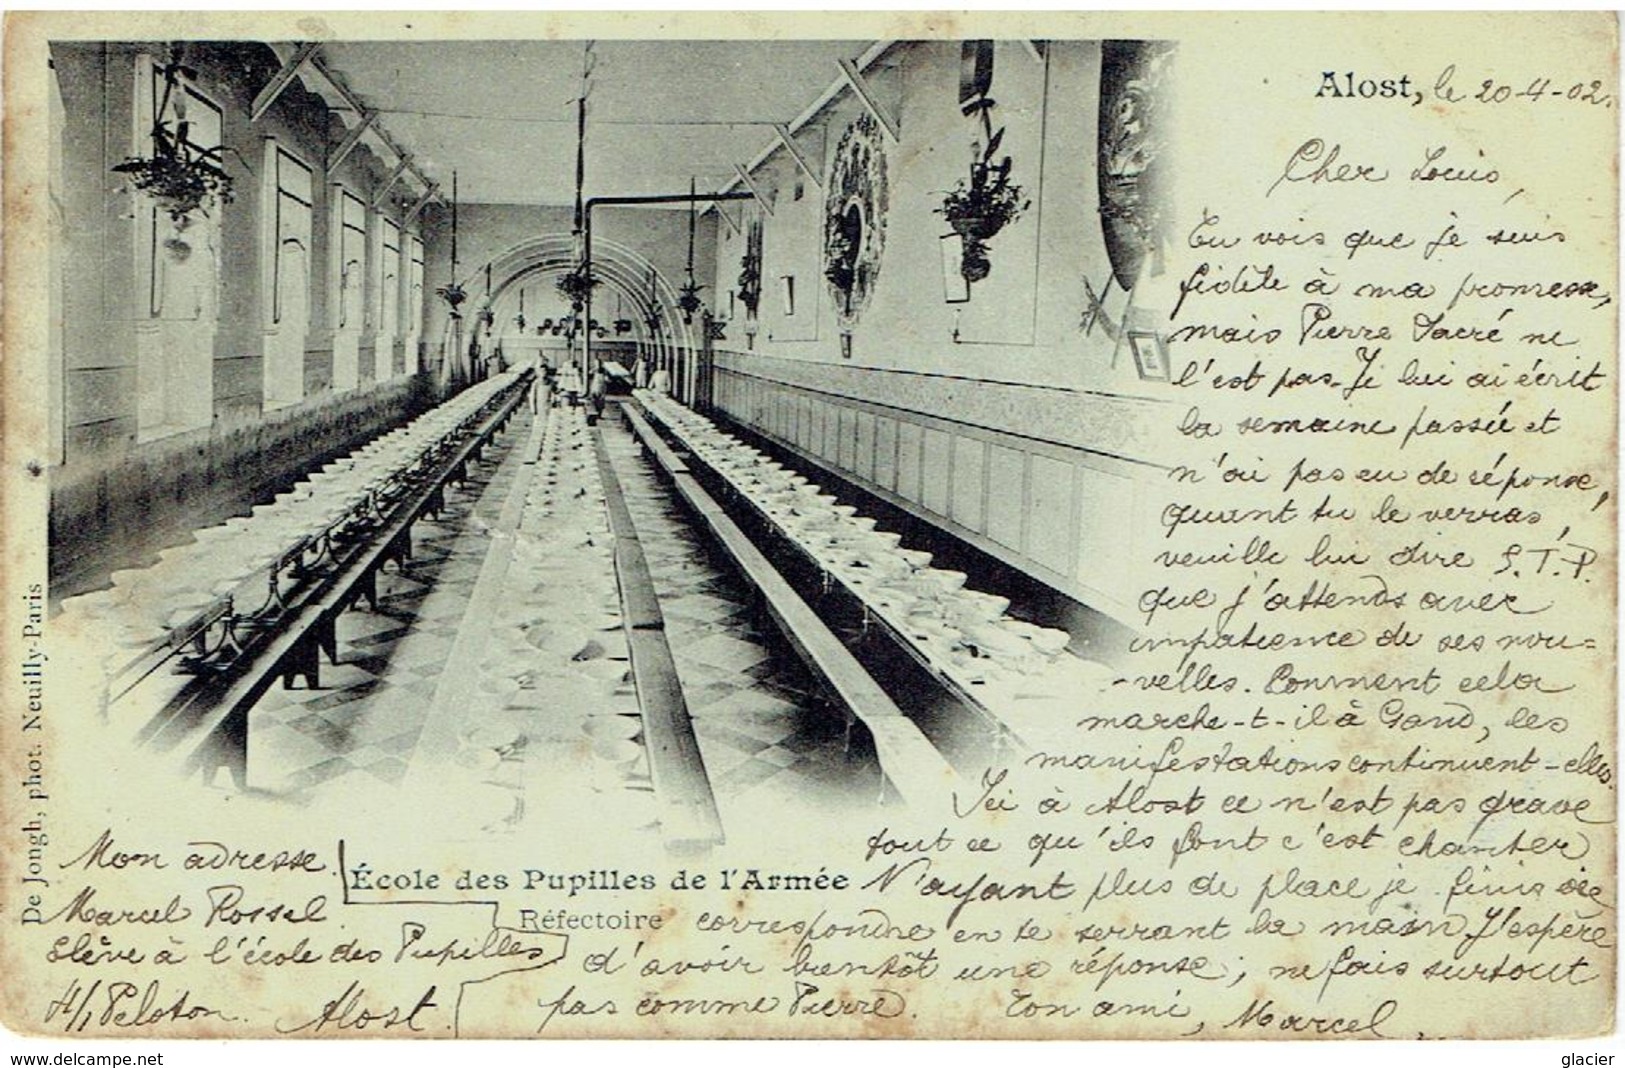 Alost, le 20-4-02.
Cher Louis,
Tu vois que je suis
fidèle à ma promesse,
mais Pierre Sacré ne
l'est pas. Je lui ai écrit
la semaine passée et
n'ai pas eu de réponse,
quant tu le verras,
veuille lui dire S.T.P.
que j'attends avec
impatience de ses nou=
-velles. Comment cela
marche-t-il à Gand, les
manifestations continuent-elles.
Ici à Alost ce n'est pas grave
tout ce qu'ils font c'est chanter
N'ayant plus de place je finis de
correspondre en te serrant la main J'espère
d'avoir bientôt une réponse; ne fais surtout
pas comme Pierre. Ton ami, Marcel.
École des Pupilles de l'Armée
Réfectoire
Mon adresse
Marcel Rossel
Elève à l'école des Pupilles
4/1 Peloton. Alost.
De Jongh, phot. Neuilly-Paris
www.delcampe.net
glacier